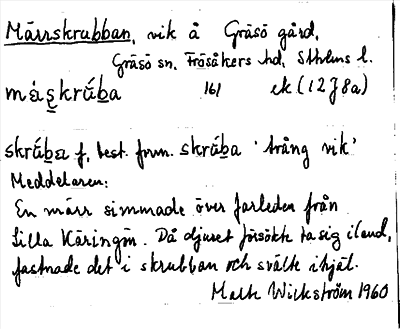 Märrskrubban, vik å Gräsö gård,
Gräsö sn, Frösåkers hd, Sthlms l.
mǽs̬krú̄ba 161 ek (12J8a)
skrú̄ba f, best. form. skrú̄ba 'trång vik'
Meddelaren:
En märr simmade över farleden från
Lilla Käringön. Då djuret försökte ta sig iland,
fastnade det i skrubban och svälte ihjäl.
Malte Wickström 1960